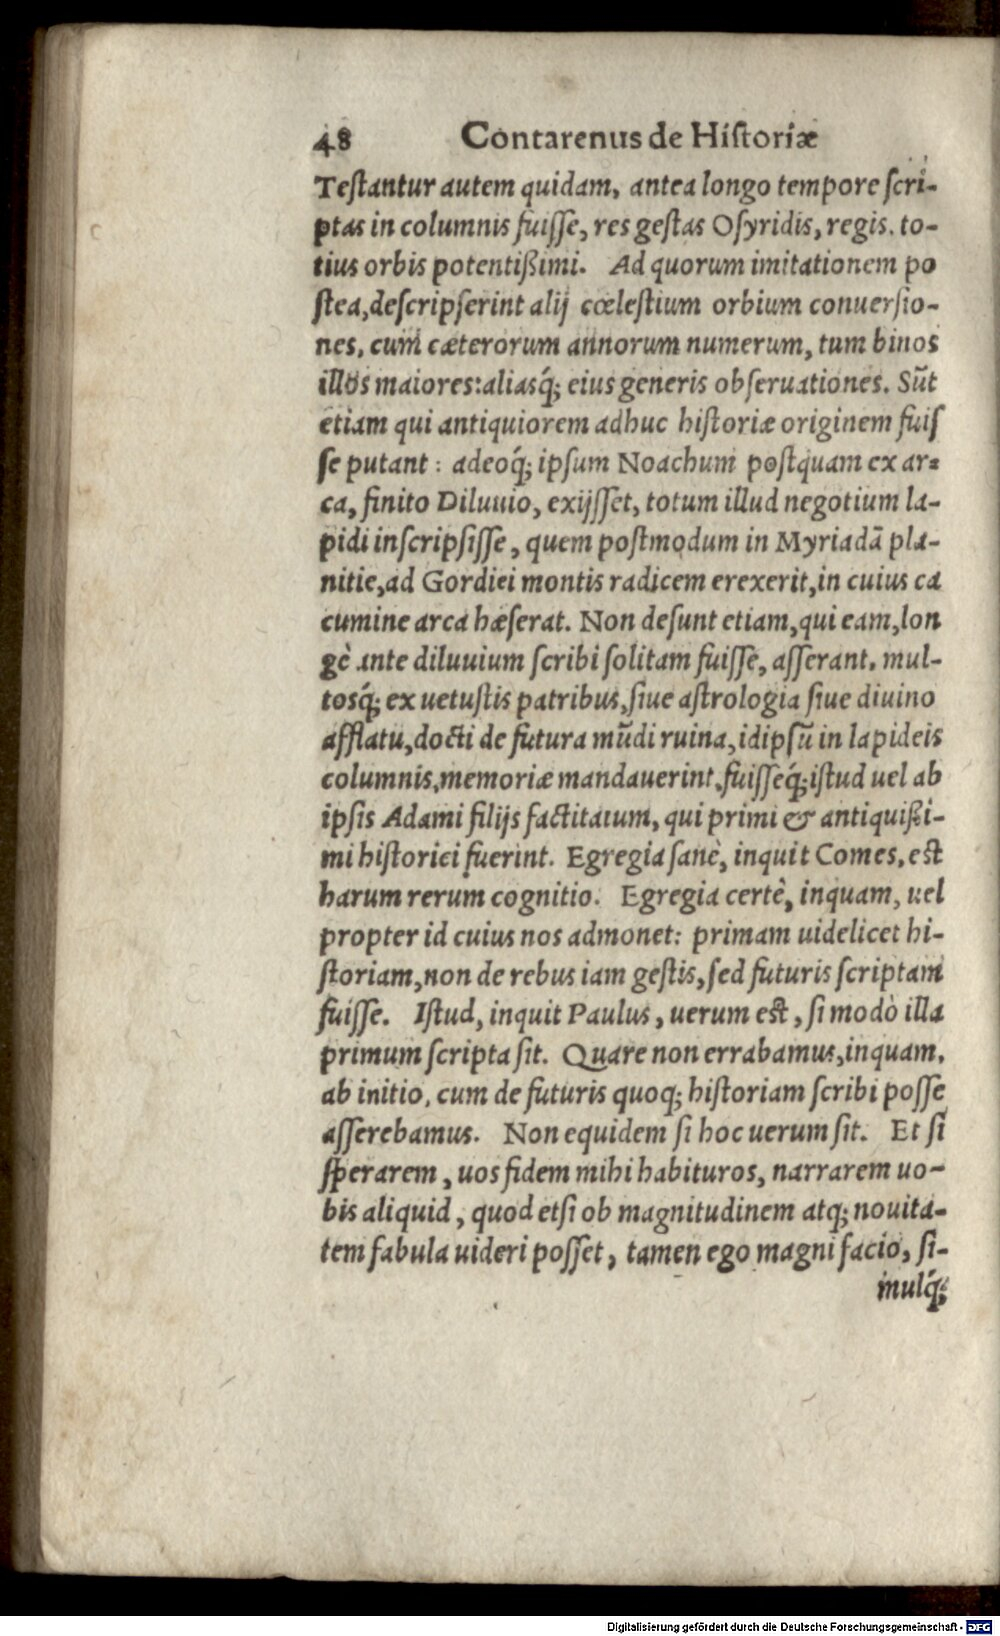 48 Contarenus de Historiæ
Testantur autem quidam, antea longo tempore scri-
ptas in columnis fuisse, res gestas Osyridis, regis. to-
tius orbis potentißimi. Ad quorum imitationem po
stea, descripserint alij cœlestium orbium conuersio-
nes, cum cæterorum annorum numerum, tum binos
illos maiores: aliasq́; eius generis obseruationes. Sũt
etiam qui antiquiorem adhuc historiæ originem fuis
se putant: adeoq́; ipsum Noachum postquam ex ar-
ca, finito Diluuio, exijsset, totum illud negotium la-
pidi inscripsisse, quem postmodum in Myriadã pla-
nitie, ad Gordiei montis radicem erexerit, in cuius ca
cumine arca hæserat. Non desunt etiam, qui eam, lon
gè ante diluuium scribi solitam fuisse, asserant. mul-
tosq́; ex uetustis patribus, siue astrologia siue diuino
afflatu, docti de futura mũdi ruina, idipsũ in lapideis
columnis, memoriæ mandauerint, fuisseq́; istud uel ab
ipsis Adami filijs factitatum, qui primi & antiquißi-
mi historici fuerint. Egregia sanè, inquit Comes, est
harum rerum cognitio. Egregia certè, inquam, uel
propter id cuius nos admonet: primam uidelicet hi-
storiam, non de rebus iam gestis, sed futuris scriptam
fuisse. Istud, inquit Paulus, uerum est, si modò illa
primum scripta sit. Quare non errabamus, inquam,
ab initio, cum de futuris quoq; historiam scribi posse
asserebamus. Non equidem si hoc uerum sit. Et si
sperarem, uos fidem mihi habituros, narrarem uo-
bis aliquid, quod etsi ob magnitudinem atq; nouita-
tem fabula uideri posset, tamen ego magni facio, si-
mulq́;
Digitalisierung gefördert durch die Deutsche Forschungsgemeinschaft - DFG